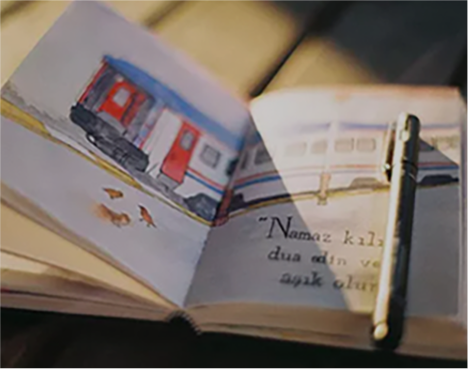 "Namaz kılı
dua edin ve
aşık olu